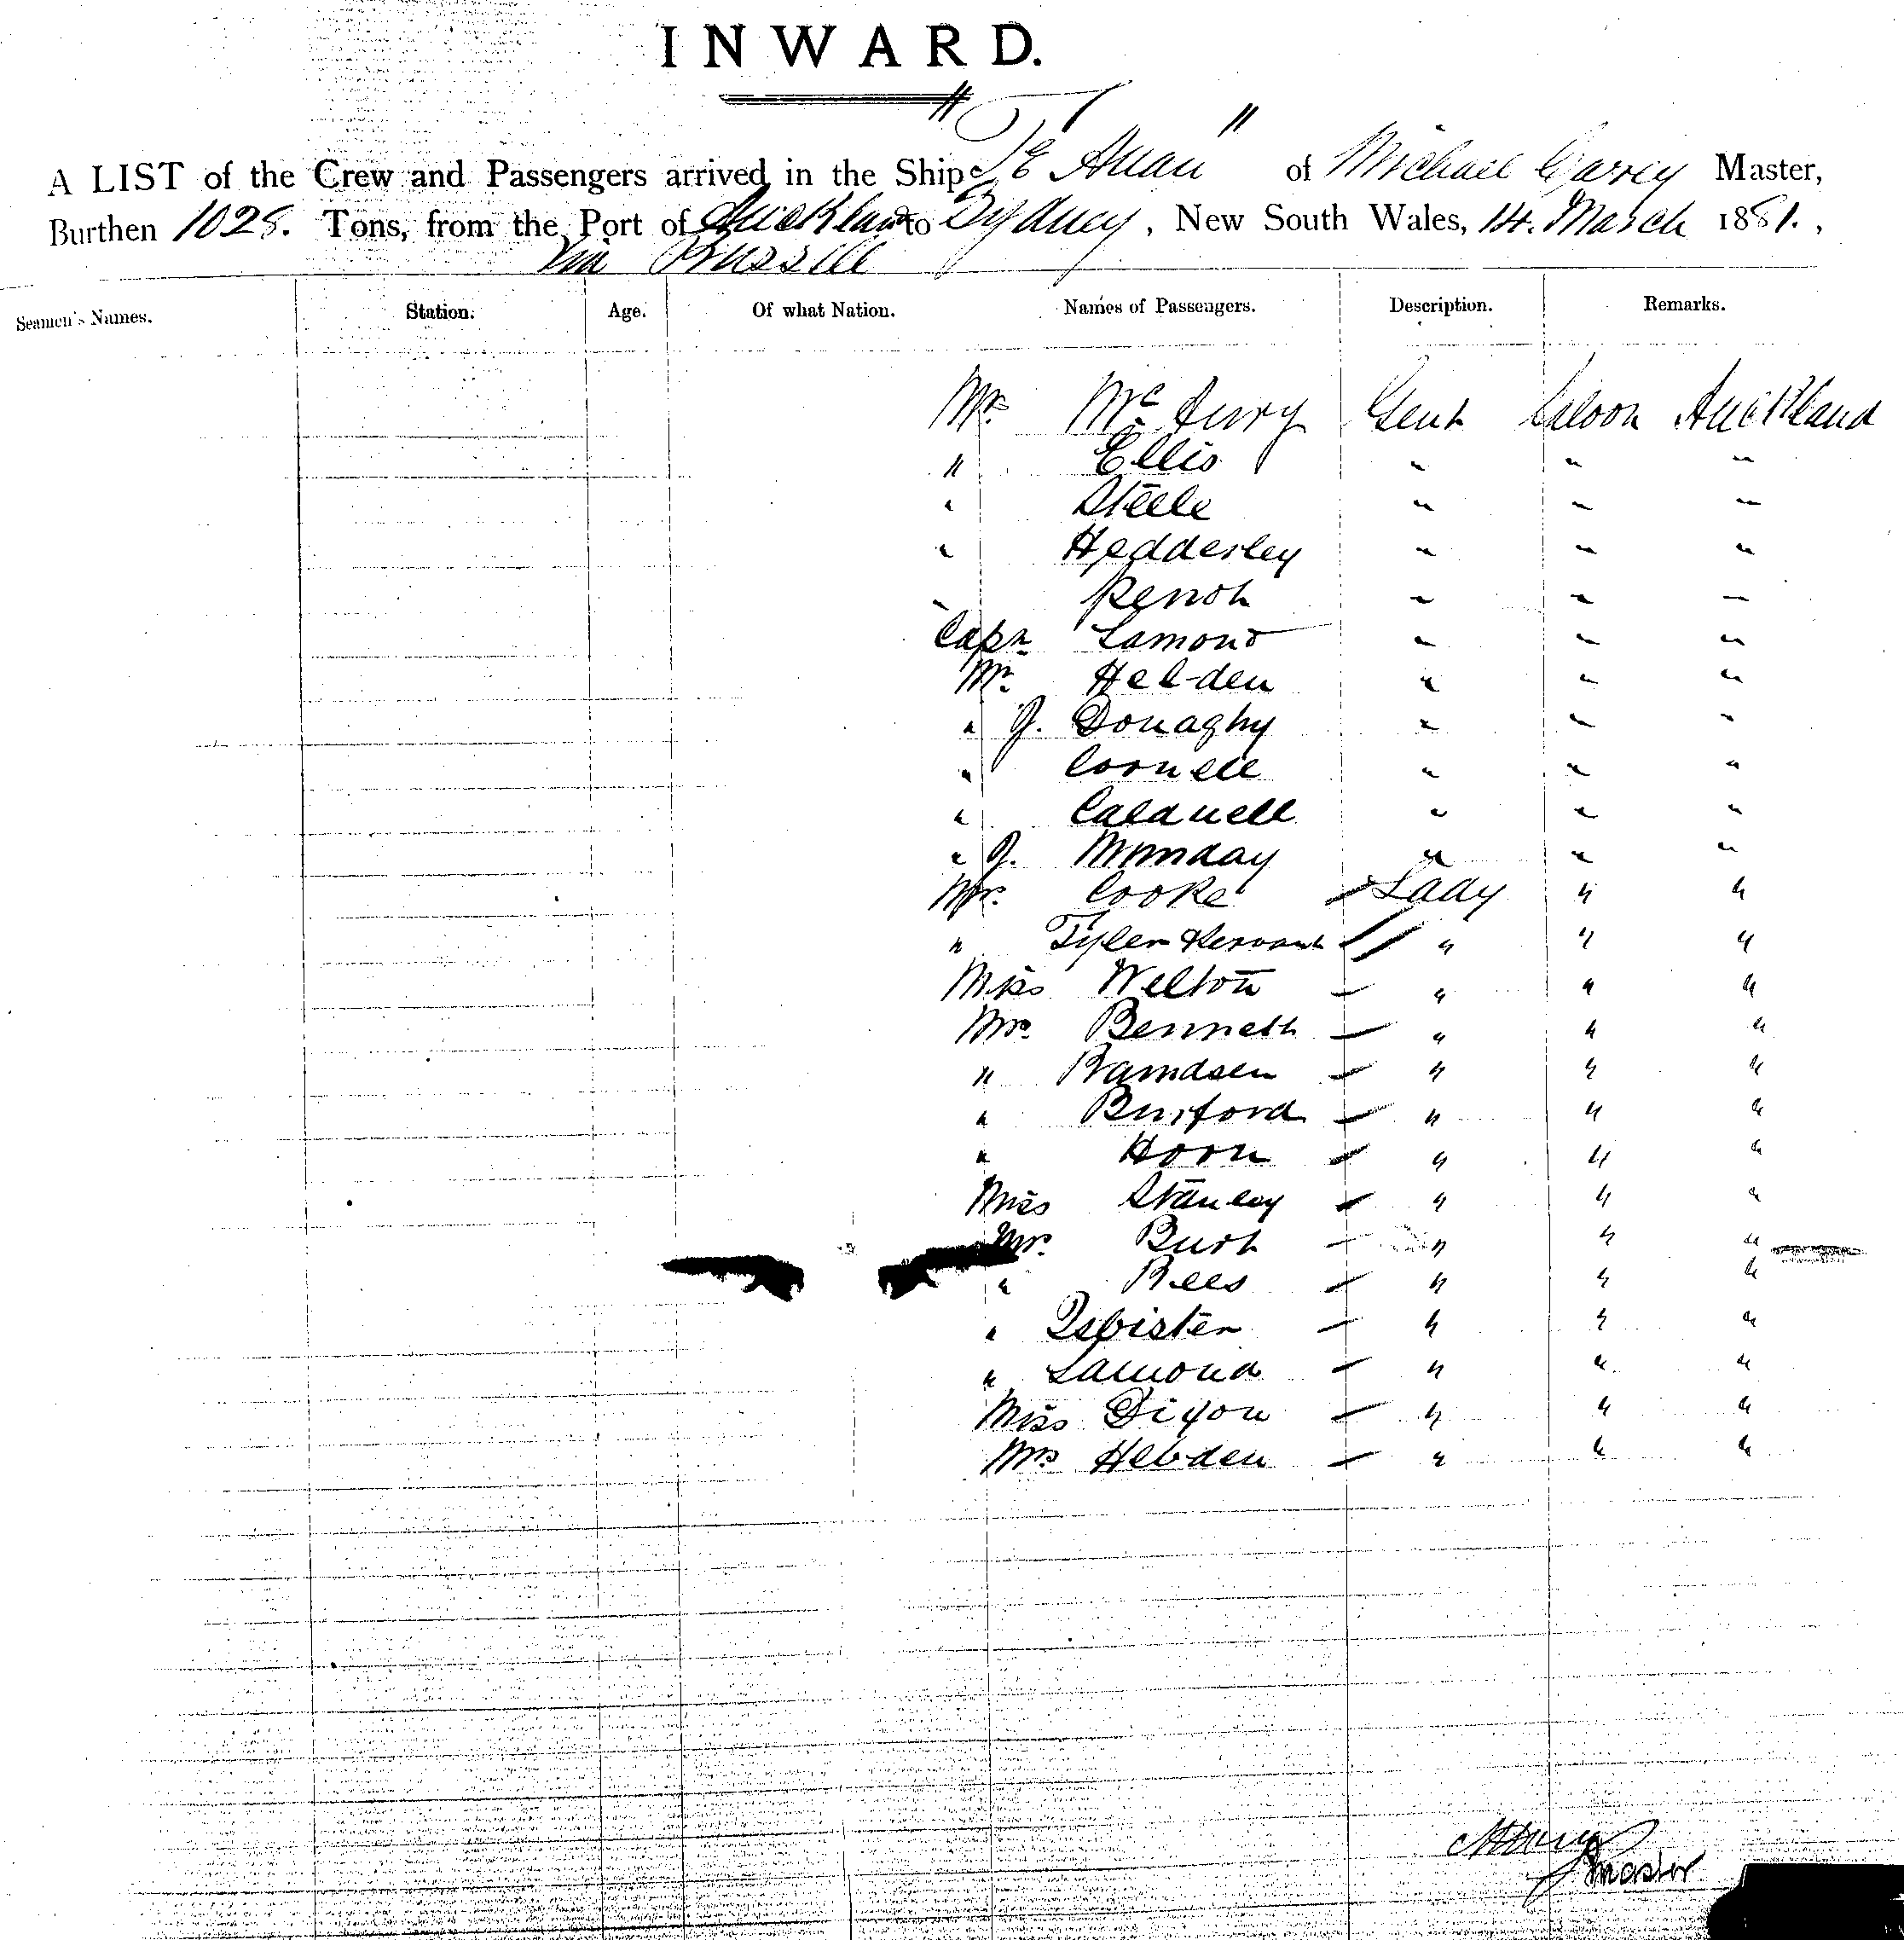 INWARD.
A LIST of the Crew and Passengers arrived in the Ship "Te Anau" of Michael Carey Master,
Burthen 1028. Tons, from the Port of Auckland to Sydney, New South Wales, 14. March 1881.,
Via Russell
Seamen's Names. Station. Age. Of what Nation. Names of Passengers. Description. Remarks.
Mr. Gent Saloon Auckland
" Ellis " " "
" Steele " " "
" Hedderley " " "
" " " "
Capn Lamond " " "
Mr. Hebden " " "
" J. Donaghy " " "
" Cornell " " "
" Caldwell " " "
" J. Munday " " "
Mrs. Cooke Lady " "
" Tyler & Servant // " " "
Miss Welton " " "
Mrs. Bennett " " "
" Ramdsen " " "
" Burford " " "
" Horn " " "
Miss Stanley " " "
Mrs. Burt " " "
" Rees " " "
" Isbister " " "
" Lamond " " "
Miss Dixon " " "
Mrs Hebden " " "
Master